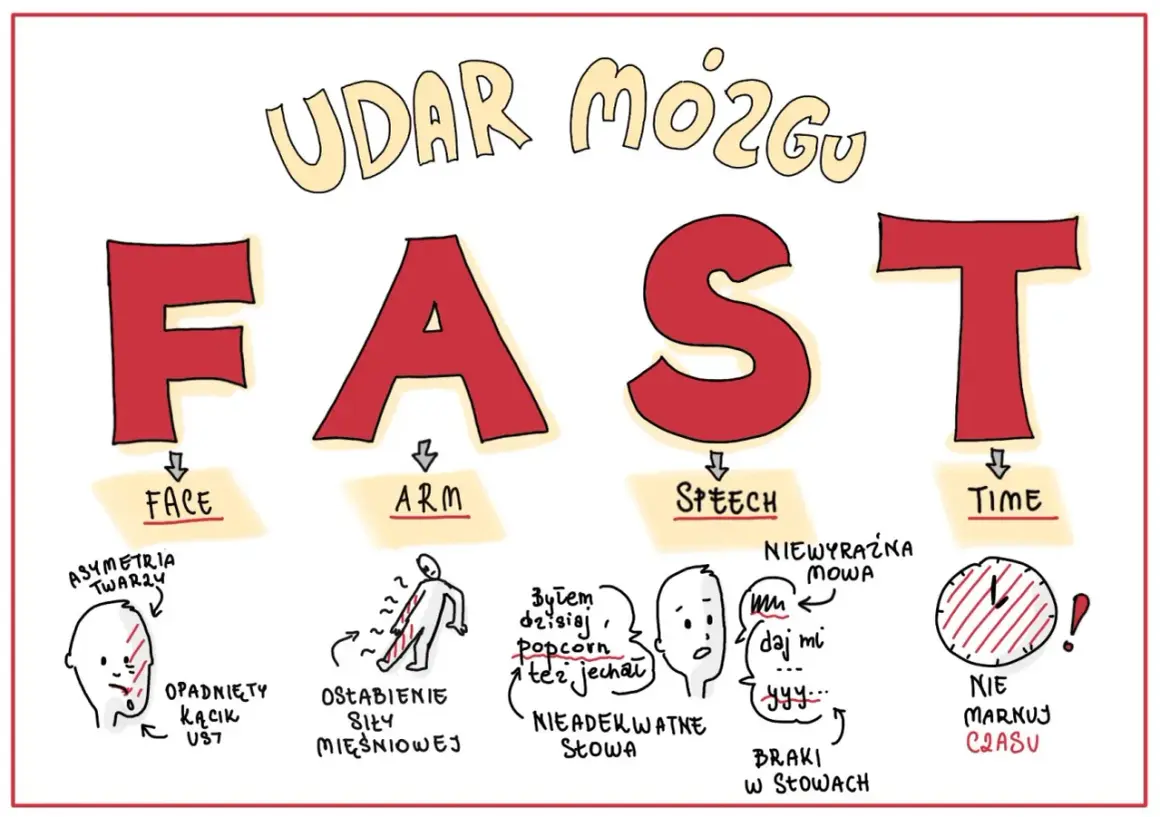 UDAR MÓZGU
FAST
FACE
ASYMETRIA
TWARZY
OPADNIĘTY
KĄCIK
UST
ARM
OSŁABIENIE
SIŁY
MIĘŚNIOWEJ
SPEECH
Byłem
dzisiaj,
popcorn
też jechał
NIEADEKWATNE
SŁOWA
NIEWYRAŹNA
MOWA
daj mi
...
yyy...
BRAKI
W SŁOWACH
TIME
!
NIE
MARNUJ
CZASU